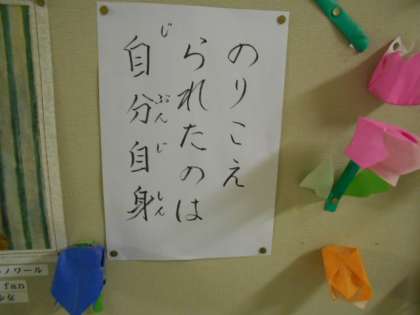 のりこえ
られたのは
自分自身
じ ぶん じ しん
ノワール
fan